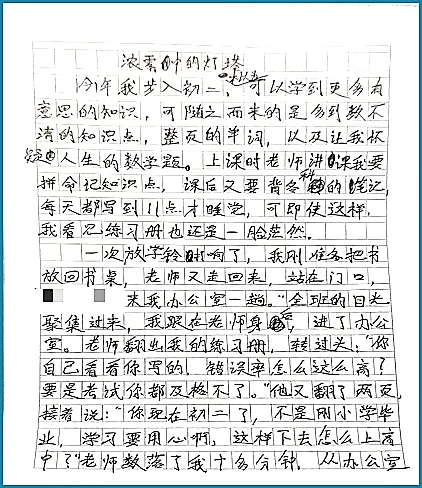 浓雾中的灯塔
今年我步入初二,本以为可以学到更多有
意思的知识,可随之而来的是多到数不
清的知识点,整页的单词,以及让我怀
疑人生的数学题。上课时老师讲课我要
拼命记知识点,课后又要背各科的笔记,
每天都写到11点才睡觉,可即使这样,
我看见练习册也还是一脸茫然。
一次放学铃响了,我刚准备把书
放回书桌,老师又走回来,站在门口,
来我办公室一趟。“全班的目光
聚集过来,我跟在老师身后,进了办公
室。老师翻出我的练习册,转过头:“你
自己看看你写的,错误率怎么这么高?
要是考试你都及格不了。”他又翻了两页,
接着说:“你现在初二了,不是刚小学毕
业,学习要用心啊,这样下去怎么上高
中?”老师数落了我十多分钟,从办公室